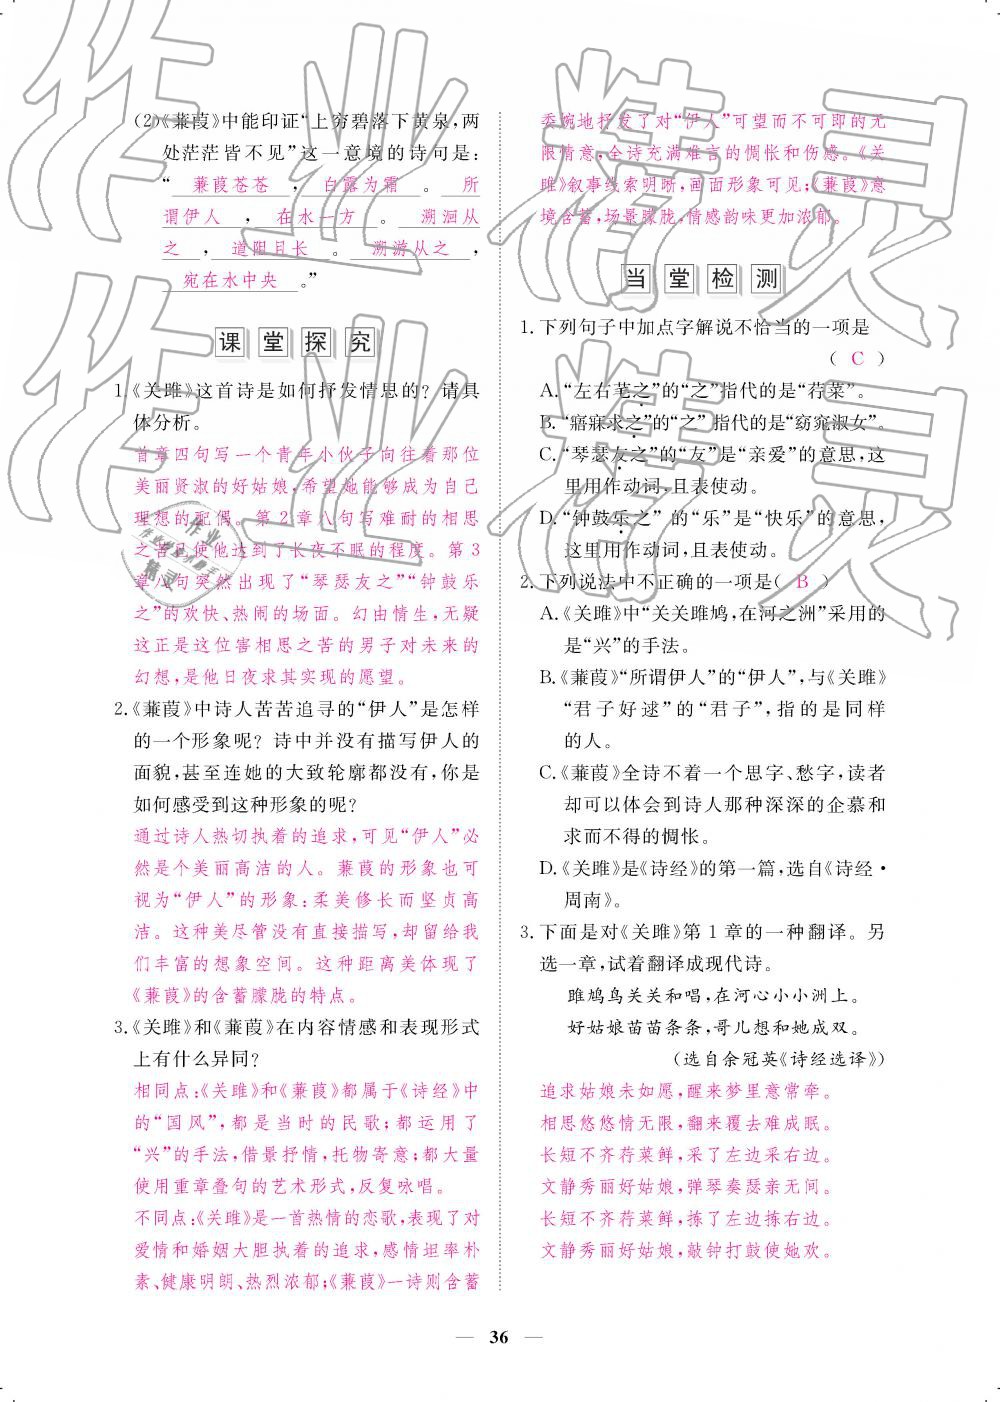 (2)《蒹葭》中能印证“上穷碧落下黄泉,两
处茫茫皆不见”这一意境的诗可是:
“ 蒹葭苍苍 , 白露为霜 。 所
谓伊人 , 在水一方 。 溯洄从
之 , 道阻且长 。 溯游从之 ,
宛在水中央 。”
课堂探究
1.《关雎》这首诗是如何抒发情思的?请具
体分析。
首章四句写一个青年小伙子向往着那位
美丽贤淑的好姑娘,希望她能够成为自己
理想的配偶。第2章八句写难耐的相思
之苦已使他达到了长夜不眠的程度。第3
章八句突然出现了“琴瑟友之”“钟鼓乐
之”的欢快、热闹的场面。幻由情生,无疑
这正是这位害相思之苦的男子对未来的
幻想,是他日夜求其实现的愿望。
2.《蒹葭》中诗人苦苦追寻的“伊人”是怎样
的一个形象呢?诗中并没有描写伊人的
面貌,甚至连她的大致轮廓都没有,你是
如何感受到这种形象的呢?
通过诗人热切执着的追求,可见“伊人”必
然是个美丽高洁的人。蒹葭的形象也可
视为“伊人”的形象:柔美修长而坚贞高
洁。这种美尽管没有直接描写,却留给我
们丰富的想象空间。这种距离美体现了
《蒹葭》的含蓄朦胧的特点。
3.《关雎》和《蒹葭》在内容情感和表现形式
上有什么异同?
相同点:《关雎》和《蒹葭》都属于《诗经》中
的“国风”,都是当时的民歌;都运用了
“兴”的手法,借景抒情,托物寄意;都大量
使用重章叠句的艺术形式,反复咏唱。
不同点:《关雎》是一首热情的恋歌,表现了对
爱情和婚姻大胆执着的追求,感情坦率朴
素、健康明朗、热烈浓郁;《蒹葭》一诗则含蓄
委婉地抒发了对“伊人”可望而不可即的无
限情意,全诗充满难言的惆怅和伤感。《关
雎》叙事线索明晰,画面形象可见;《蒹葭》意
境含蓄,场景朦胧,情感韵味更加浓郁。
当堂检测
1.下列句子中加点字解说不恰当的一项是
( C )
A.“左右芼之”的“之”指代的是“荇菜”。
B.“寤寐求之”的“之”指代的是“窈窕淑女”。
C.“琴瑟友之”的“友”是“亲爱”的意思,这
里用作动词,且表使动。
D.“钟鼓乐之”的“乐”是“快乐”的意思,
这里用作动词,且表使动。
2.下列说法中不正确的一项是( B )
A.《关雎》中“关关雎鸠,在河之洲”采用的
是“兴”的手法。
B.《蒹葭》“所谓伊人”的“伊人”,与《关雎》
“君子好逑”的“君子”,指的是同样
的人。
C.《蒹葭》全诗不着一个思字、愁字,读者
却可以体会到诗人那种深深的企慕和
求而不得的惆怅。
D.《关雎》是《诗经》的第一篇,选自《诗经·
周南》。
3.下面是对《关雎》第1章的一种翻译。另
选一章,试着翻译成现代诗。
雎鸠鸟关关和唱,在河心小小洲上。
好姑娘苗苗条条,哥儿想和她成双。
(选自余冠英《诗经选译》)
追求姑娘未如愿,醒来梦里意常牵。
相思悠悠情无限,翻来覆去难成眠。
长短不齐荇菜鲜,采了左边采右边。
文静秀丽好姑娘,弹琴奏瑟亲无间。
长短不齐荇菜鲜,拣了左边拣右边。
文静秀丽好姑娘,敲钟打鼓使她欢。
— 36 —
作业精灵
作业精灵